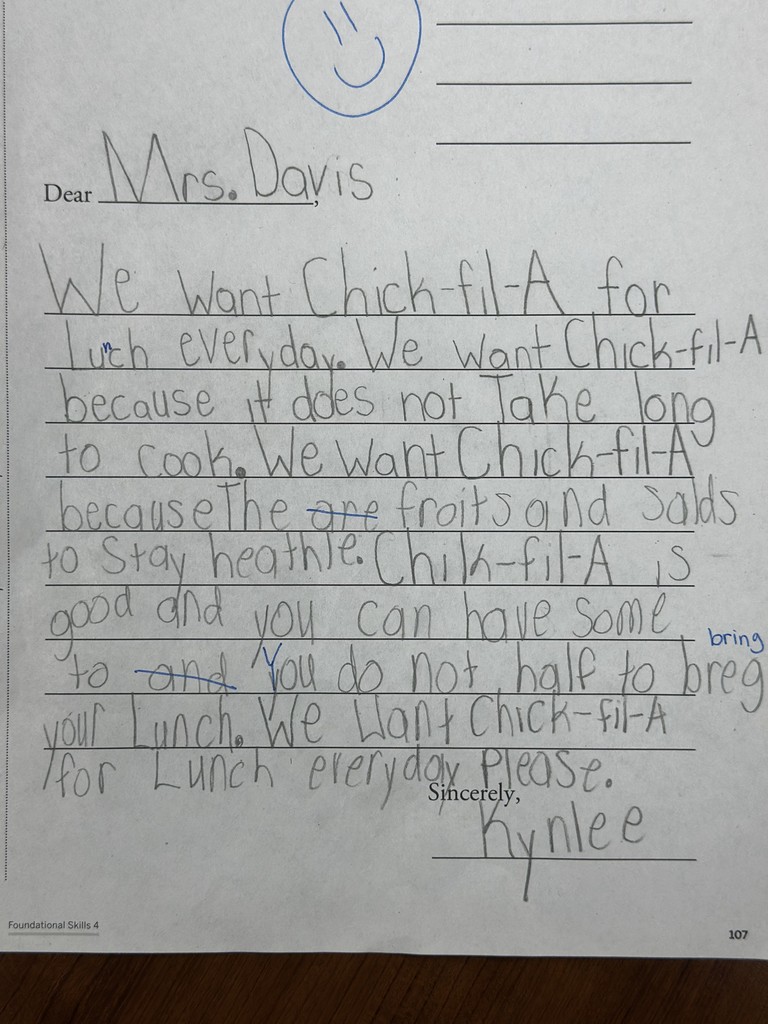 Dear Mrs. Davis,
We want Chick-fil-A for
Lunch everyday. We want Chick-fil-A
because it does not Take long
to cook. We want Chick-fil-A
because The are froits and salds
to Stay heathle. Chilk-fil-A is
good and you can have some
bring
to and You do not half to breg
your Lunch. We Want Chick-fil-A
for Lunch everyday Please.
Sincerely,
Kynlee
Foundational Skills 4
107